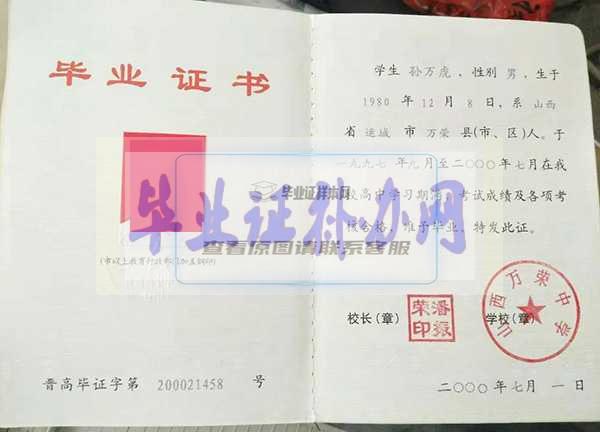 毕业证书
(市以上教育行政部门加盖钢印)
晋高毕证字第 200021458 号
学生 孙万虎，性别 男，生于
1980 年 12 月 8 日，系 山西
省 运城 市 万荣 县(市、区)人。于
一九九七 年 九 月至二〇〇〇年七月在我
校高中学习期满，考试成绩及各项考
核合格，准予毕业，特发此证。
校长(章)
潘振荣印
学校(章)
山西万荣中学
二〇〇〇年七月一日
毕业证样本网
毕业证补办网
查看原图请联系客服